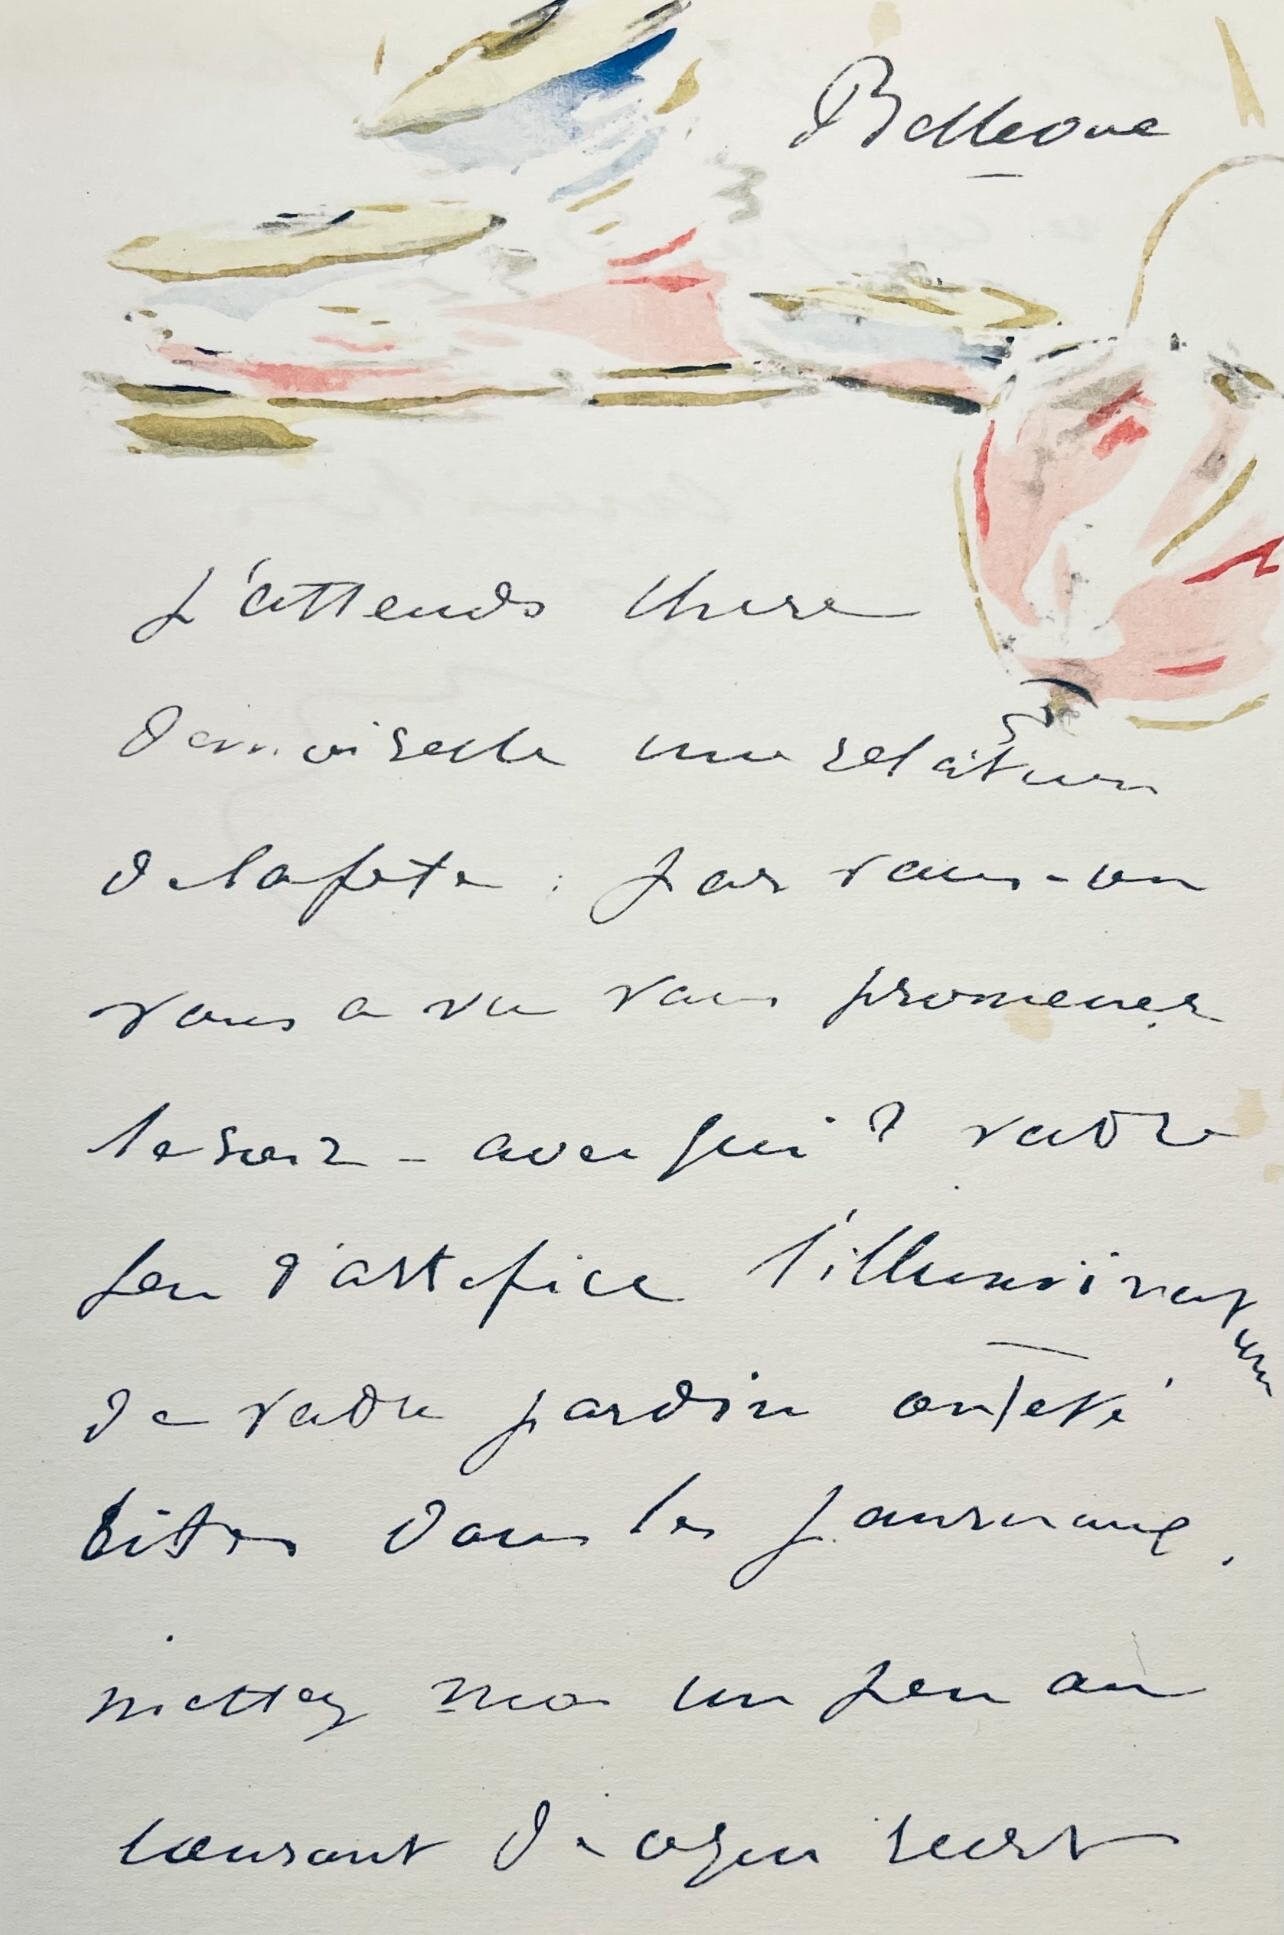 Bellevue
J'attends chere
demoiselle une relation
de la fete : par vous - on
vous a vu vous promener
le soir - avec qui ? votre
feu d'artifice l'illumination
de votre jardin ont eté
cités dans les journaux.
mettez moi un peu au
courant de ce qui s'est